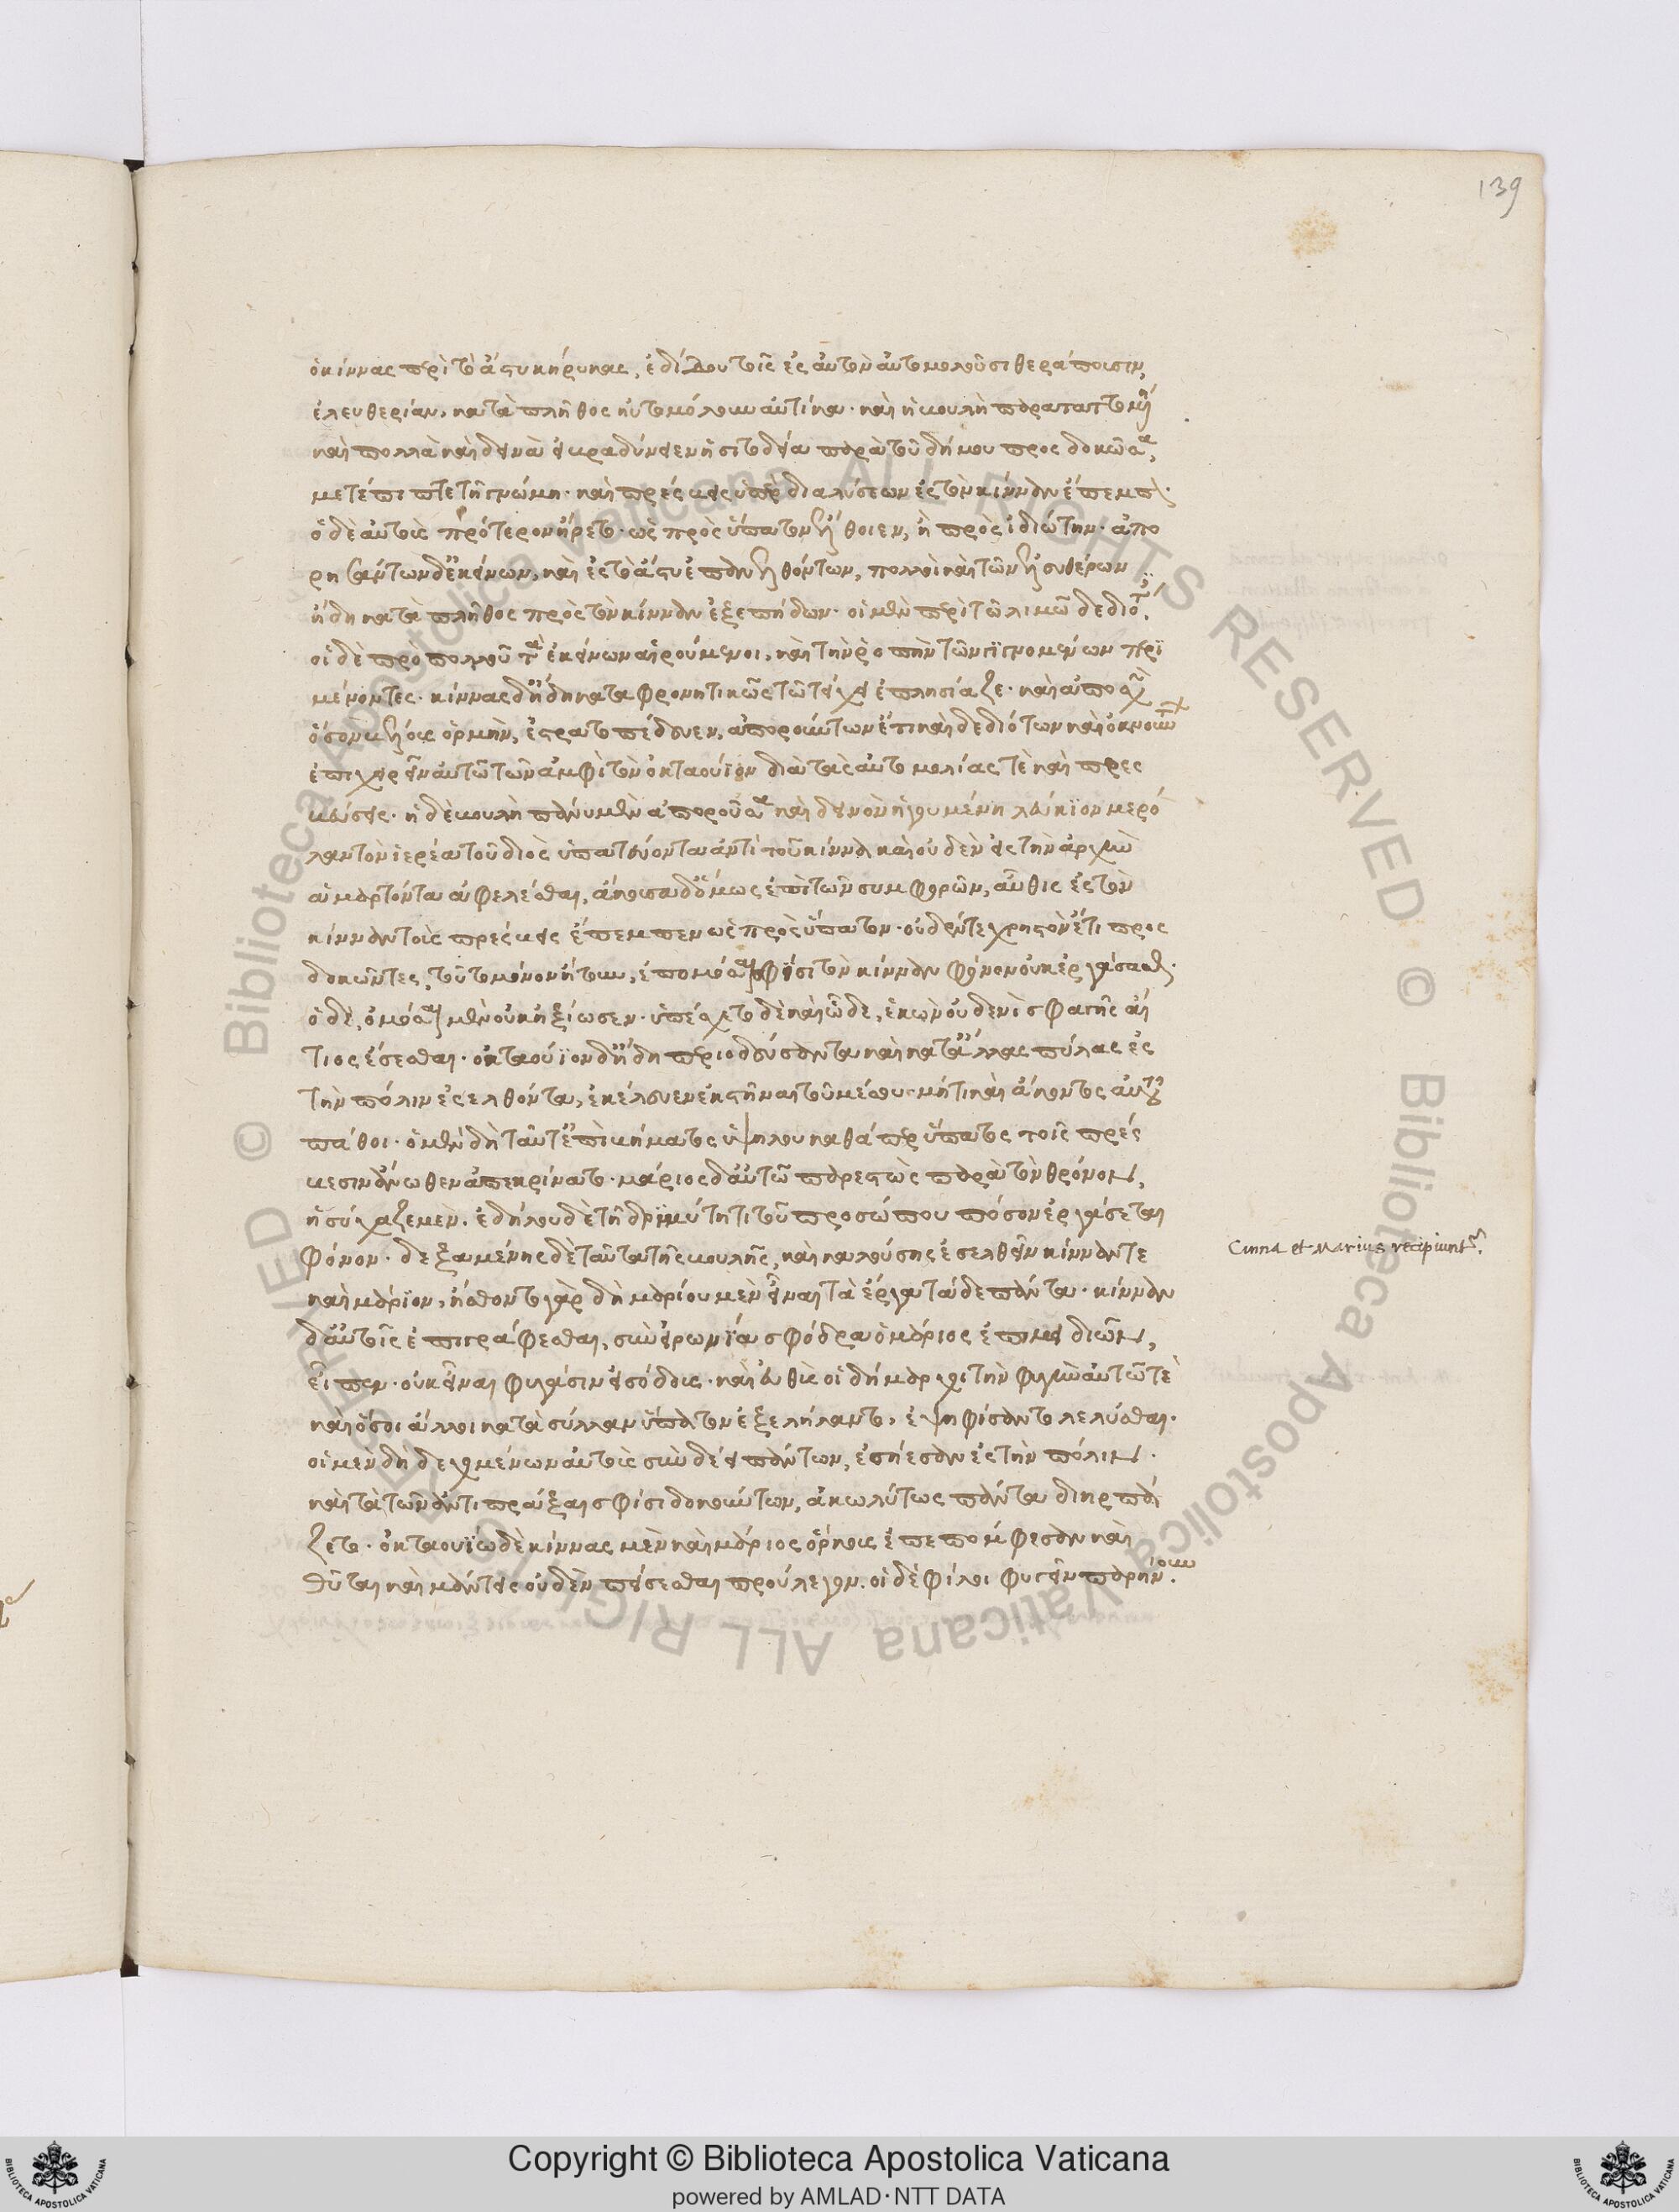 139
ὁ κίννας περὶ τὸ ἄστυ κήρυκας, ἐδίδου τοῖς ἐς αὐτὸν αὐτομολοῦσι θεράπουσιν,
ἐλευθερίαν, κατὰ πλῆθος ηὐτομόλουν αὐτίκα. καὶ ἡ βουλὴ ταραττομένη
καὶ πολλὰ καὶ δεινὰ εἰ βραδύνειεν ἡ σιτοδεία παρὰ τοῦ δήμου προσδοκῶσα,
μετέπιπτε τῇ γνώμῃ. καὶ πρέσβεις ὑπὲρ διαλύσεων ἐς τὸν κίνναν ἔπεμπον.
ὁ δὲ αὐτοὺς πρότερον ἤρετο. ὡς πρὸς ὕπατον ἔλθοιεν, ἢ πρὸς ἰδιώτην. ἀπο
ρησάντων δ' ἐκείνων, καὶ ἐς τὸ ἄστυ ἐπανελθόντων, πολλοὶ καὶ τῶν ἐλευθέρων
ἤδη κατὰ πλῆθος πρὸς τὸν κίνναν ἐξεπήδων. οἱ μὲν περὶ τῷ λιμῷ δεδιότες.
οἱ δὲ πρὸ πολλοῦ τὰ ἐκείνων αἱρούμενοι, καὶ τὴν ῥοπὴν τῶν γιγνομένων περι
μένοντες. κίννας δ' ἤδη καταφρονητικῶς τῷ τείχει ἐπλησίαζε. καὶ ἀποσχὼν
ὅσον βέλους ὁρμὴν, ἐστρατοπέδευεν, ἀπορούντων ἔτι καὶ δεδιότων καὶ ὀκνούντων
ἐπιχειρεῖν αὐτῷ τῶν ἀμφὶ τὸν ὀκταούϊον διὰ τὰς αὐτομολίας τὲ καὶ πρεσ
βεύσεις. ἡ δὲ βουλὴ πάνυ μὲν ἀποροῦσα καὶ δεινὸν ἡγουμένη λεύκιον μερό
λαν τὸν ἱερέα τοῦ διὸς ὑπατεύοντα ἀντὶ τοῦ κίννα καὶ οὐδὲν ἐς τὴν ἀρχὴν
ἁμαρτόντα ἀφελέσθαι, ἄκουσα δ' ὅμως ἐπὶ τῶν συμφορῶν, αὖθις ἐς τὸν
κίνναν τοὺς πρέσβεις ἔπεμπεν ὡς πρὸς ὕπατον. οὐδέν τε χρηστὸν ἔτι προς
δοκῶντες, τοῦτο μόνον ᾔτουν, ἐπομόσαι σφίσι τὸν κίνναν φόνον οὐκ ἐργάσασθαι.
ὁ δὲ, ὀμόσαι μὲν οὐκ ἠξίωσεν. ὑπέσχετο δὲ καὶ ὧδε, ἑκὼν οὐδενὶ σφαγῆς αἴ
τιος ἔσεσθαι. ὀκταούϊον δ' ἤδη περιοδεύσαντα καὶ κατ' ἄλλας πύλας ἐς
τὴν πόλιν ἐσελθόντα, ἐκέλευεν ἐκστῆναι τοῦ μέσου μή τι καὶ ἄκοντος αὐτοῦ
πάθοι. ὁ μὲν δὴ ταῦτ' ἐπὶ βήματος ὑψηλοῦ καθάπερ ὕπατος τοῖς πρέσ
βεσιν ἄνωθεν ἀπεκρίνατο. μάριος δ' αὐτῷ παρεστὼς παρὰ τὸν θρόνον,
ἡσύχαζε μὲν. ἐδήλου δὲ τῇ δριμύτητι τοῦ προσώπου πόσον ἐργάσεται
φόνον. δεξαμένης δὲ ταῦτα τῆς βουλῆς, καὶ καλούσης ἐσελθεῖν κίνναν τε
καὶ μάριον, ᾔσθοντο γὰρ δὴ μαρίου μὲν εἶναι τὰ ἔργα τάδε πάντα. κίνναν
δ' αὐτοῖς ἐπιγράφεσθαι, σὺν εἰρωνίᾳ σφόδρα ὁ μάριος ἐπιμειδιῶν,
εἶπεν. οὐκ εἶναι φυγάσιν εἰσόδους. καὶ εὐθὺς οἱ δήμαρχοι τὴν φυγὴν αὐτῷ τὲ
καὶ ὅσοι ἄλλοι κατὰ σύλλαν ὕπατον ἐξελήλαντο, ἐψηφίσαντο λελύσθαι.
οἱ μὲν δὴ δεχομένων αὐτοὺς σὺν δέει πάντων, ἐσῄεσαν ἐς τὴν πόλιν.
καὶ τὰ τῶν ἀντιπρᾶξαι σφίσι δοκούντων, ἀκωλύτως πάντα διηρπά
ζετο. ὀκταουίῳ δὲ κίννας μὲν καὶ μάριος ὅρκους ἐπεπόμφεσαν καὶ
θύται καὶ μάντεις οὐδὲν πείσεσθαι προύλεγον. οἱ δὲ φίλοι φυγεῖν παρῄνουν.
Cinna et Marius recipiuntur